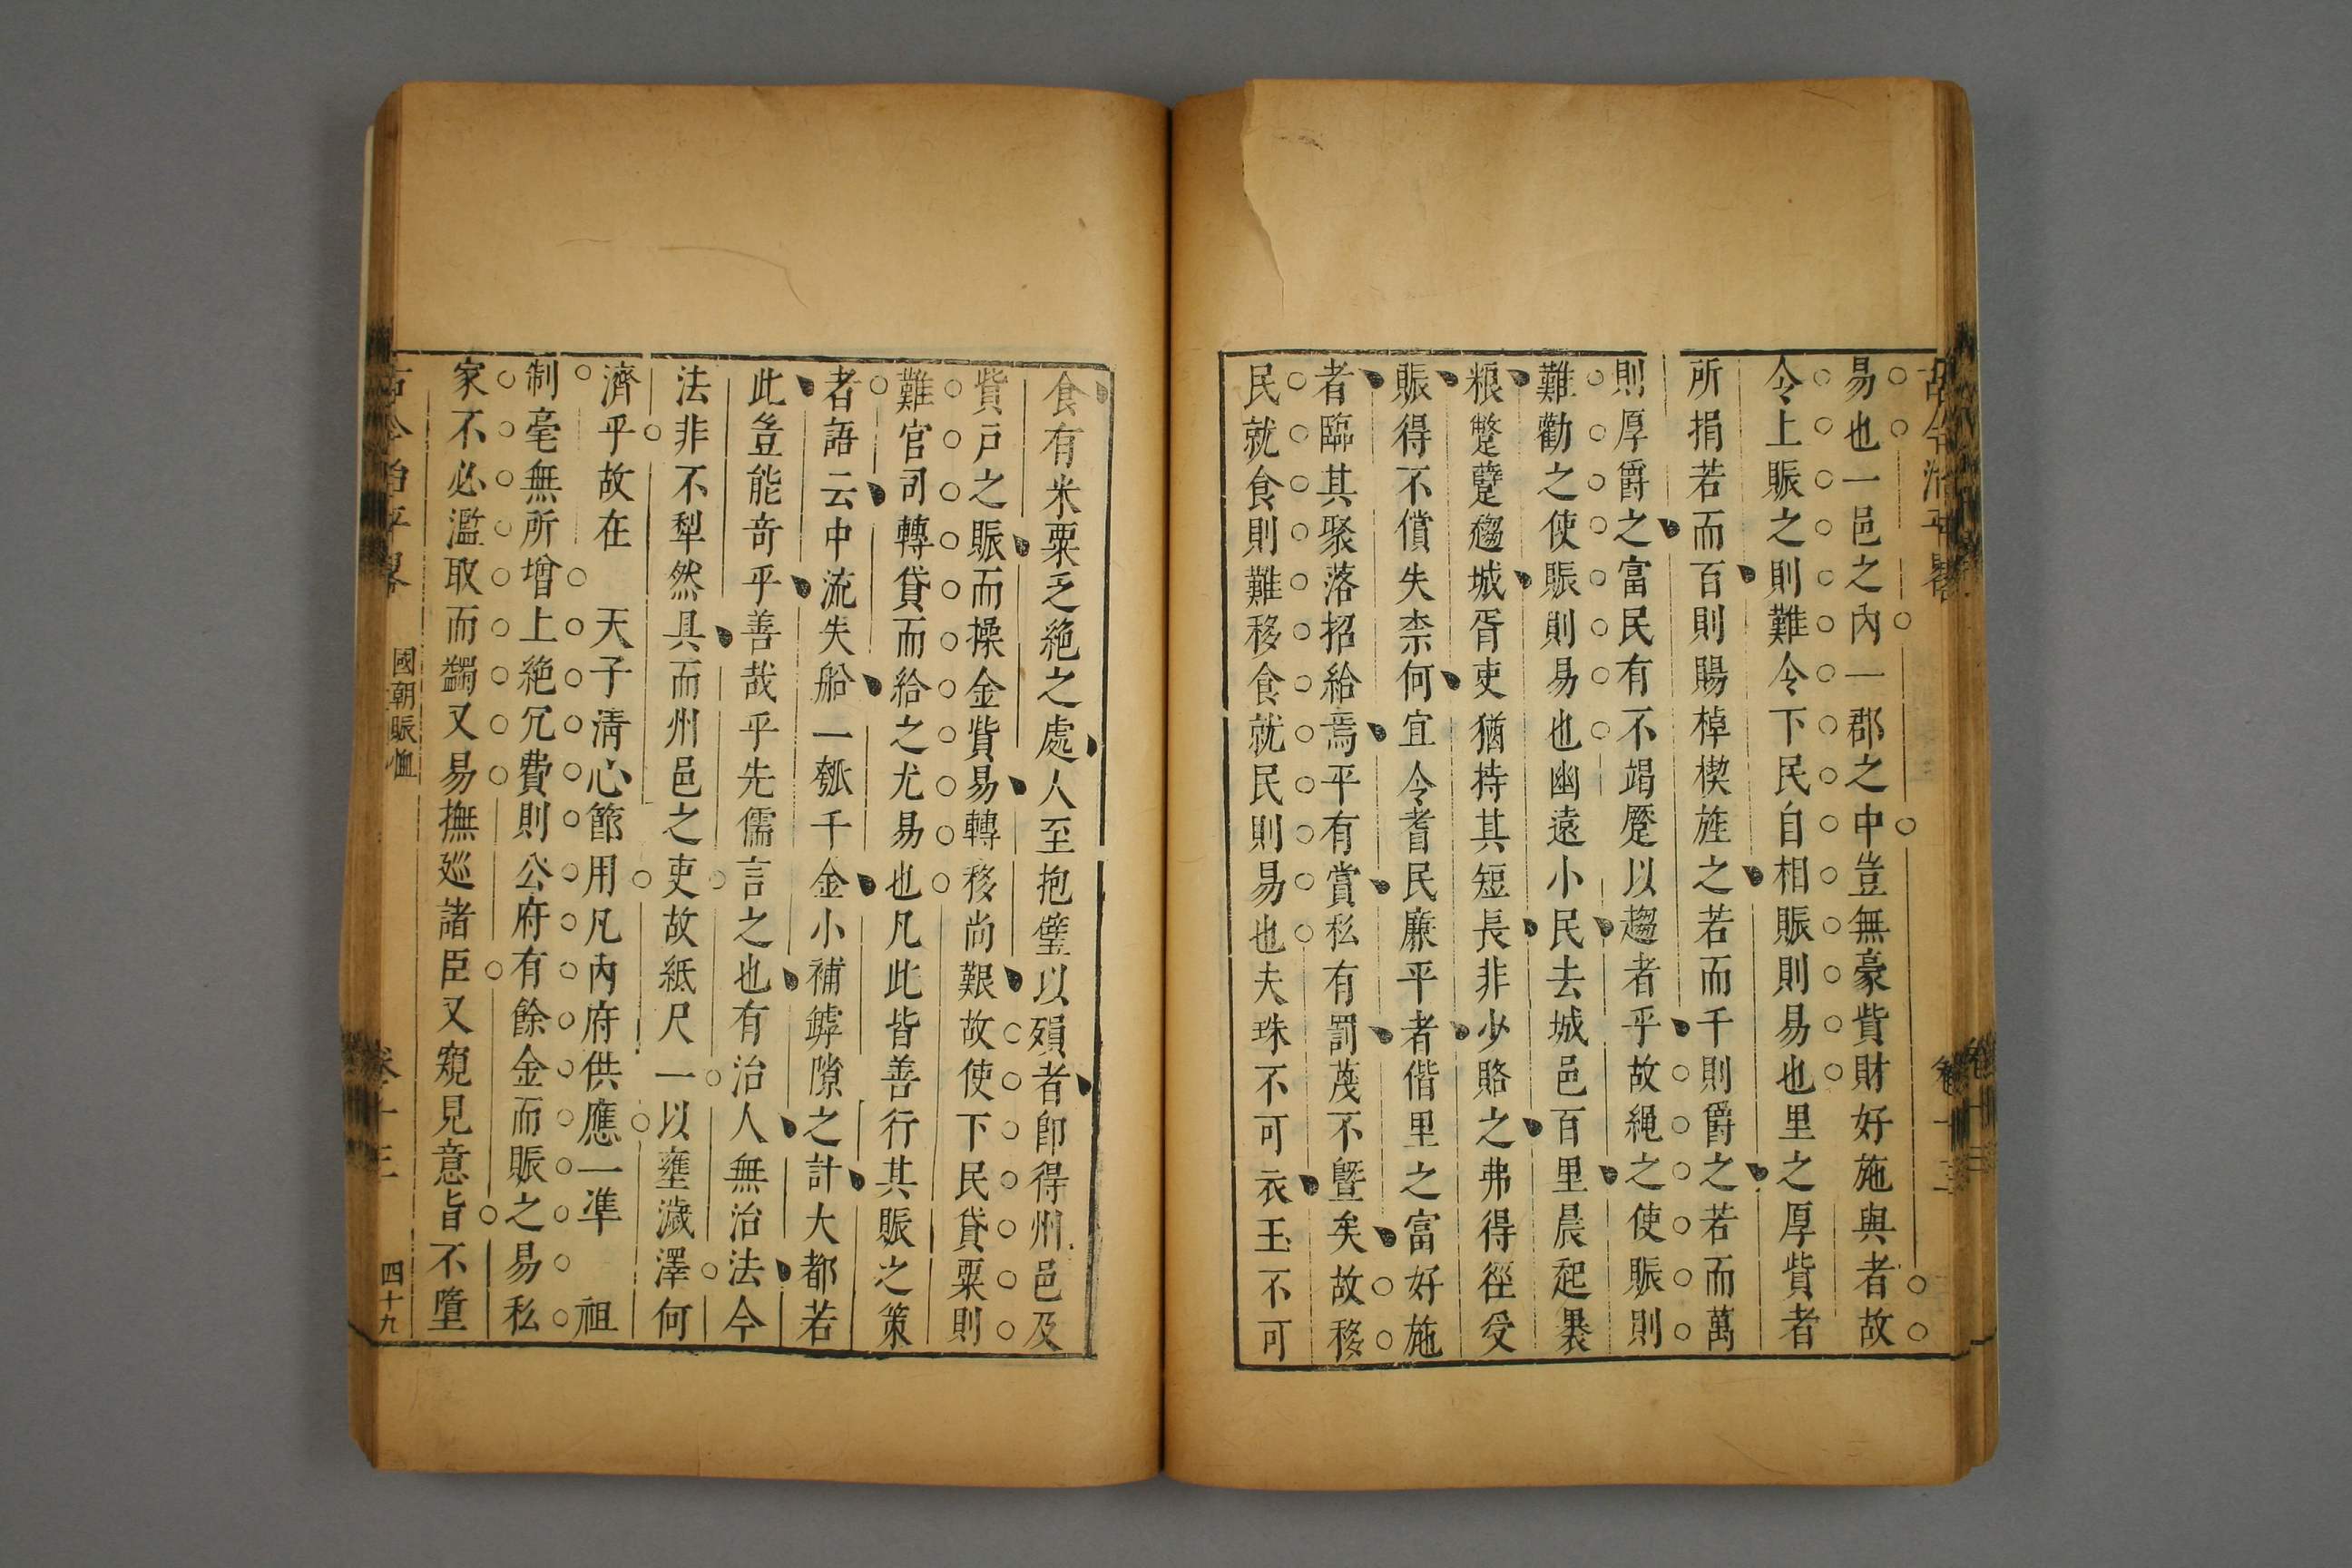 易也一邑之內一郡之中豈無豪貲財好施與者故
令上賑之則難令下民自相賑則易也里之厚貲者
所捐若而百則賜棹楔旌之若而千則爵之若而萬
則厚爵之富民有不竭蹷以趨者乎故繩之使賑則
難勸之使賑則易也幽遠小民去城邑百里晨起裹
粮蹩躠趨城胥吏猶持其短長非少賂之弗得徑受
賑得不償失柰何宜令耆民廉平者偕里之富好施
者臨其聚落招給焉平有賞私有罰蔑不曁矣故移
民就食則難移食就民則易也夫珠不可衣玉不可
食有米粟乏絶之處人至抱璧以殞者卽得州邑及
貲戸之賑而操金貲易轉移尚艱故使下民貸粟則
難官司轉貸而給之尤易也凡此皆善行其賑之策
者語云中流失船一瓠千金小補罅隙之計大都若
此豈能奇乎善哉乎先儒言之也有治人無治法今
法非不犁然具而州邑之吏故紙尺一以壅濊澤何
濟乎故在 天子淸心節用凡內府供應一準 祖
制毫無所增上絶冗費則公府有餘金而賑之易私
家不必濫取而蠲又易撫廵諸臣又窺見意旨不墮
古今治平畧
國朝賑恤
卷十三
四十九